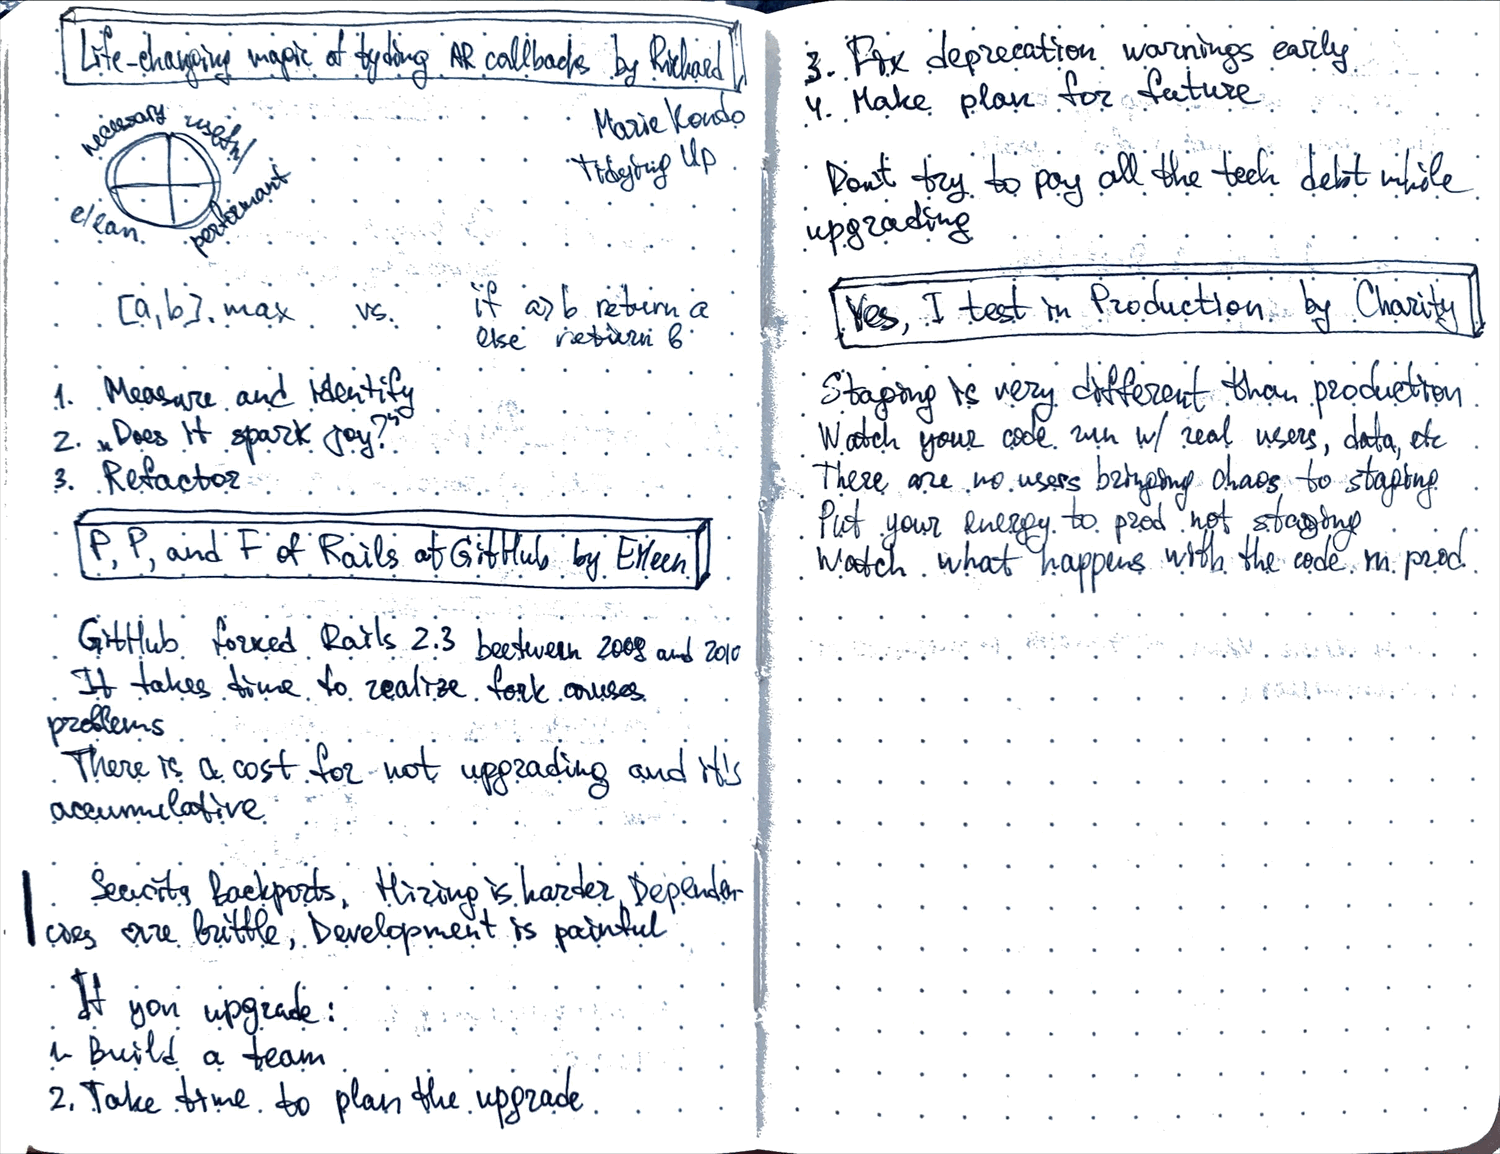 Life-changing magic of tyding AR callbacks by Richard
necessary useful
clean performant
Marie Kondo
Tidying Up
[a,b].max vs. if a>b return a
else return b
1. Measure and identify
2. „Does it spark joy?"
3. Refactor
P, P, and F of Rails at GitHub by Eileen
GitHub forked Rails 2.3 beetween 2008 and 2010
It takes time to realize fork causes
problems
There is a cost for not upgrading and it's
accumulative
Security Backports, Hiring is harder, Dependen-
cies are brittle, Development is painful
If you upgrade:
1. Build a team
2. Take time to plan the upgrade
3. Fix deprecation warnings early
4. Make plan for future
Don't try to pay all the tech debt while
upgrading
Yes, I test in Production by Charity
Staging is very different than production
Watch your code run w/ real users, data, etc
There are no users bringing chaos to staging
Put your energy to prod not staging
Watch what happens with the code in prod.